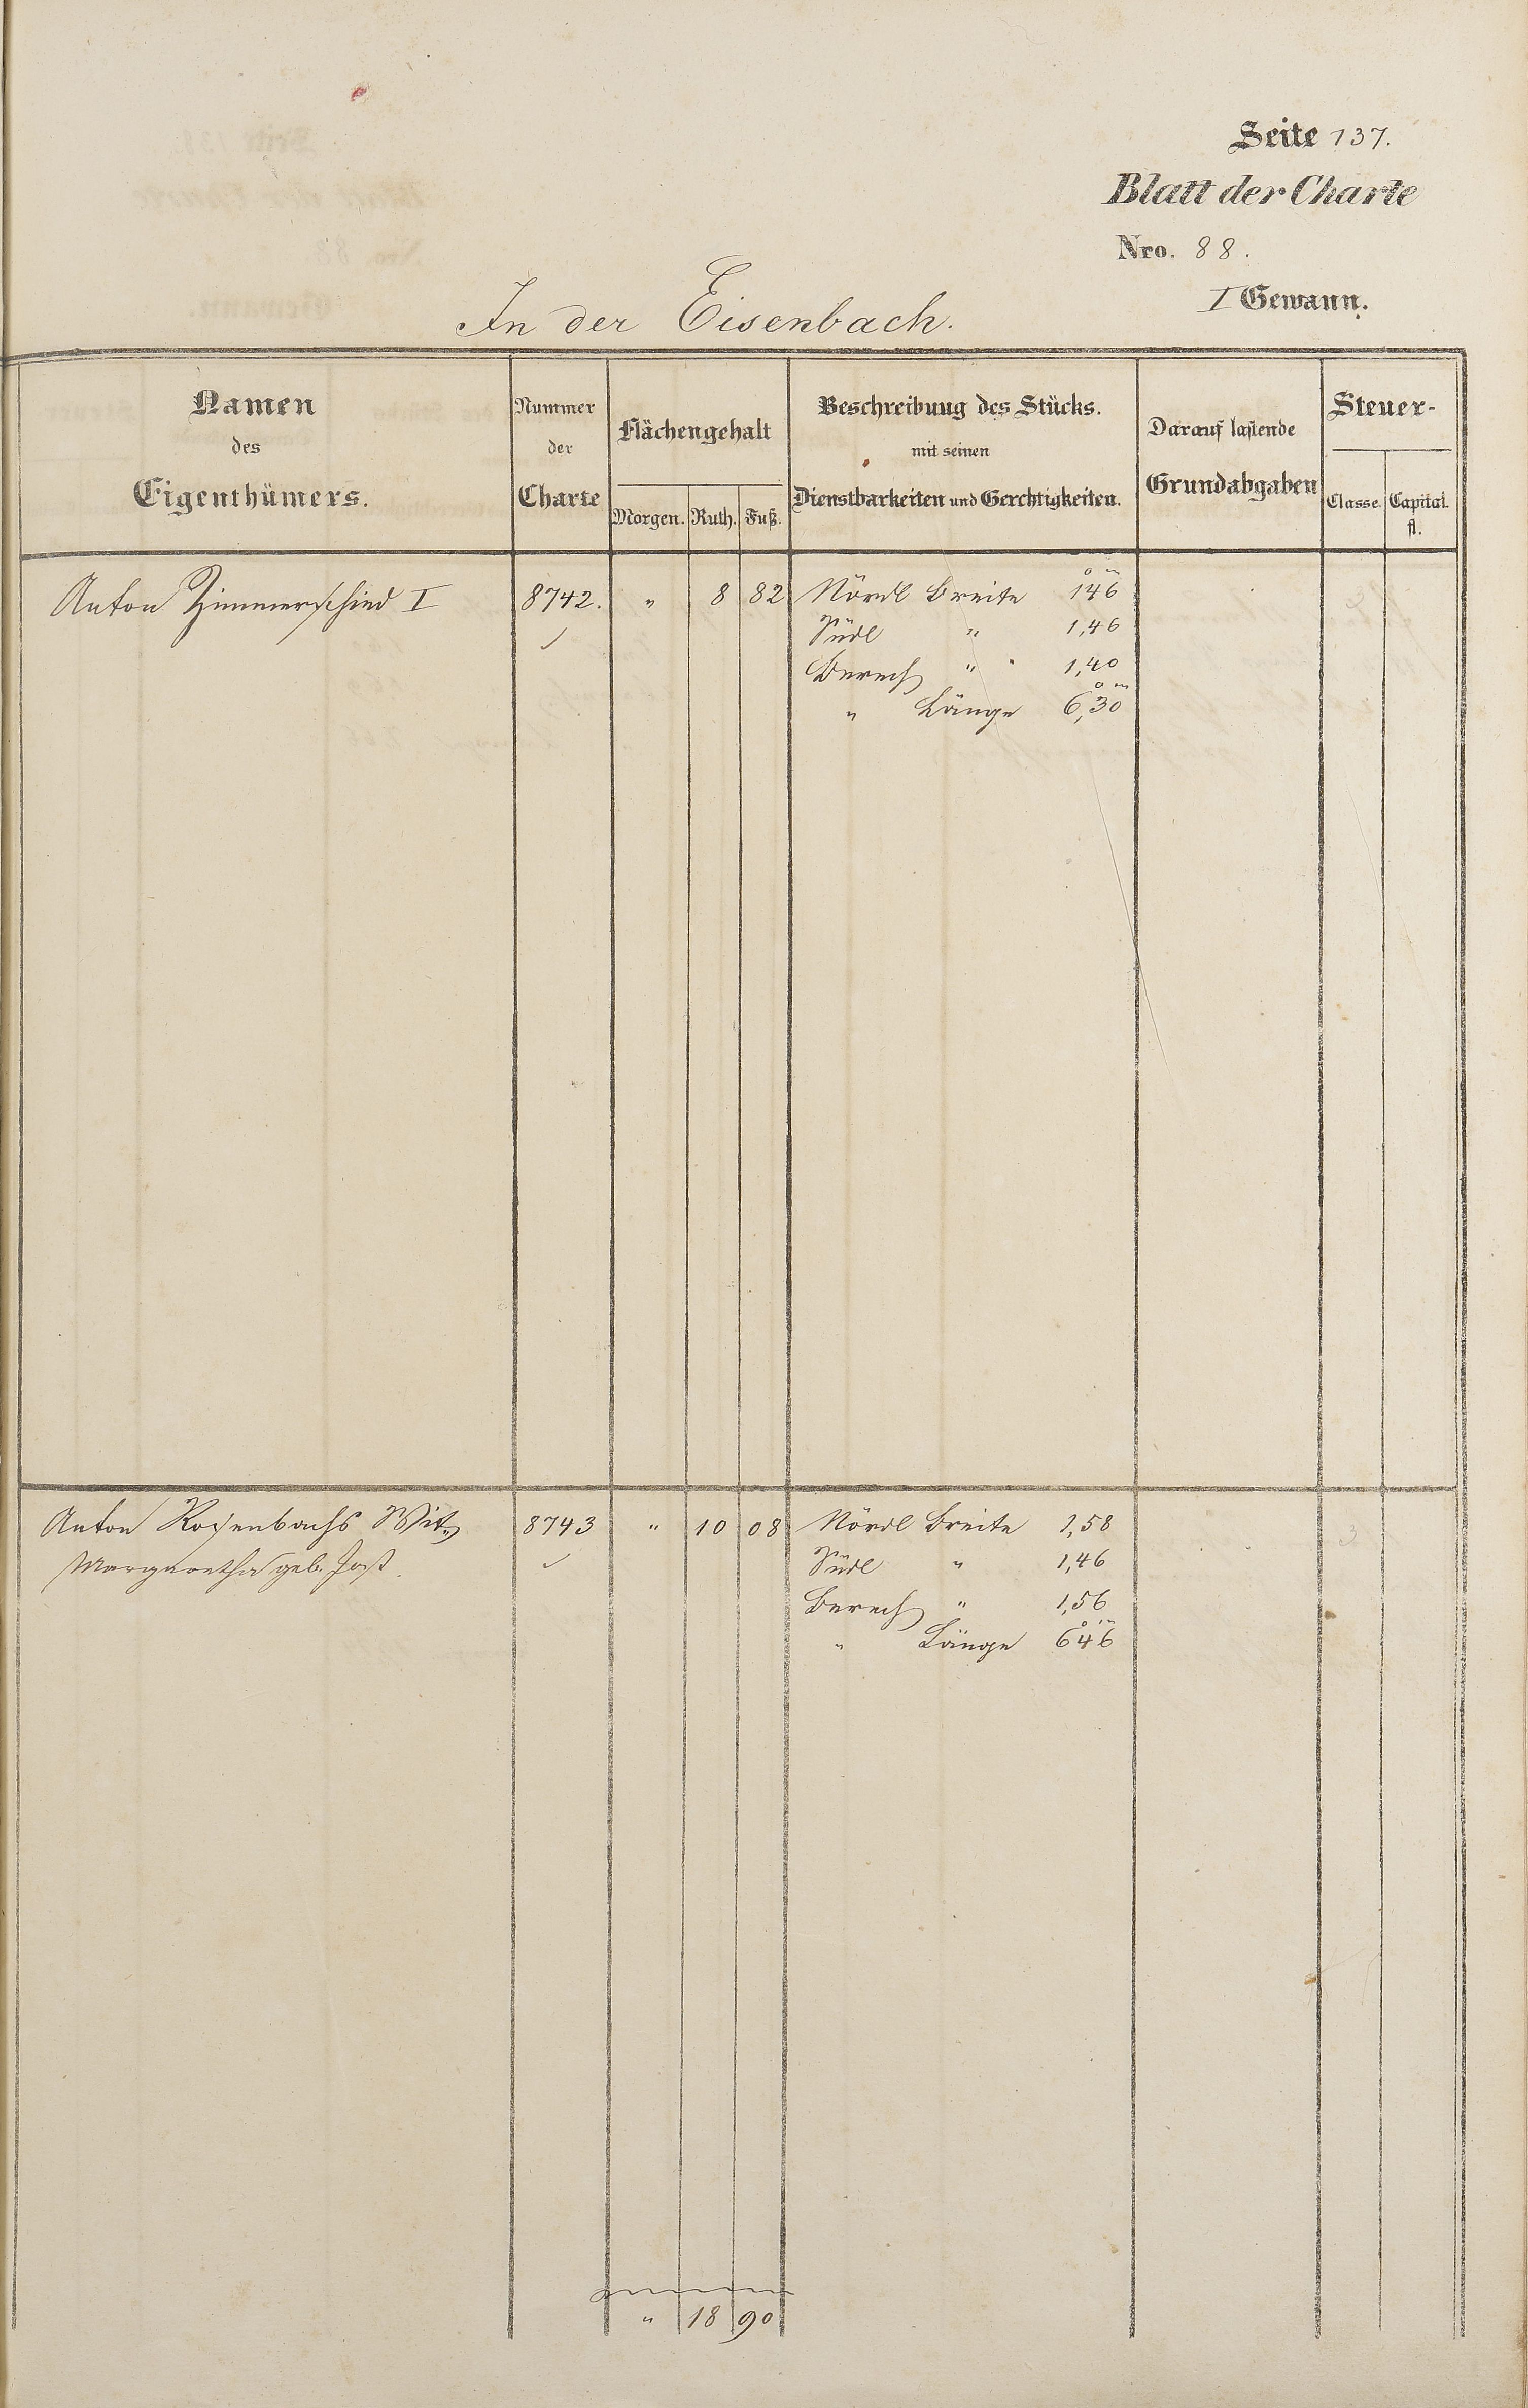 Seite 137.
Blatt der Charte
Nro. 88.
I Gewann.
In der Eisenbach.
Namen
des
Eigenthümers.
Nummer
der
Charte
Flächengehalt
Morgen. Ruth. Fuß.
Beschreibung des Stücks.
mit seinen
Dienstbarkeiten und Gerechtigkeiten.
Darauf lastende
Grundabgaben
Steuer-
Classe. Capital.
fl.
Anton Zimmerschied I 8742. " 8 82 Nördl Breite 146
Südl " 1,46
Berech " " 1,40
" Länge 6,30
Anton Rosenbachs Wit. 8743 " 10 08 Nördl Breite 1,58
Margaretha geb. Jost. Südl " 1,46
Berech " 1,56
" Länge 646
" 18 90